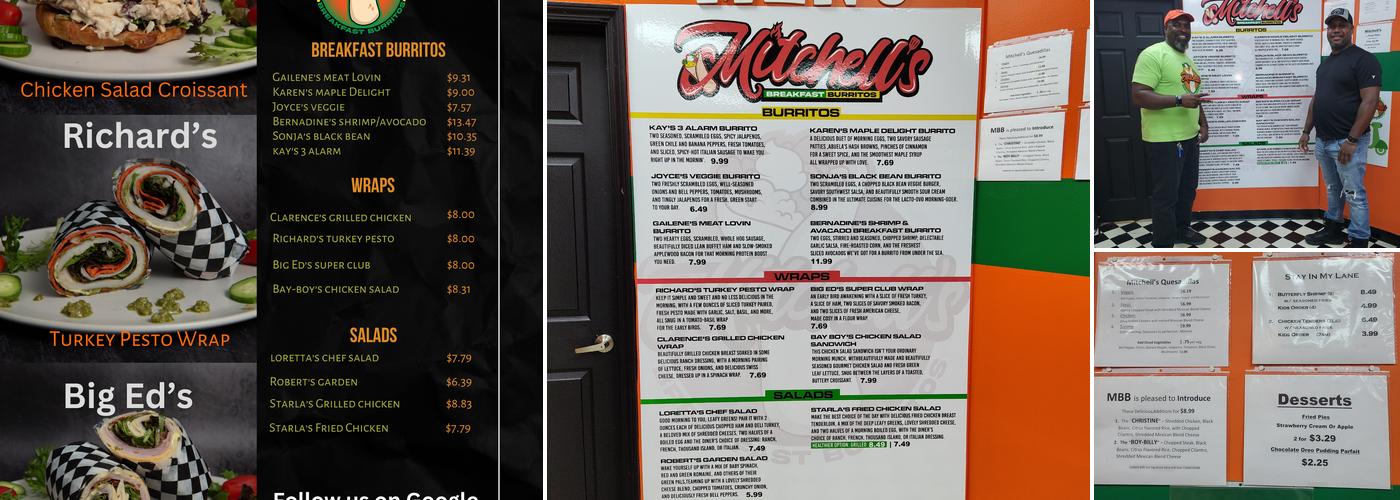 Chicken Salad Croissant
Richard's
Turkey Pesto Wrap
Big Ed's
BREAKFAST BURRITOS
BREAKFAST BURRITOS
Gailene's meat Lovin $9.31
Karen's maple Delight $9.00
Joyce's veggie $7.57
Bernadine's shrimp/avocado $13.47
Sonja's black bean $10.35
Kay's 3 alarm $11.39
WRAPS
Clarence's grilled chicken $8.00
Richard's turkey pesto $8.00
Big Ed's super club $8.00
Bay-boy's chicken salad $8.31
SALADS
Loretta's chef salad $7.79
Robert's garden $6.39
Starla's Grilled chicken $8.83
Starla's Fried Chicken $7.79
Follow us on Google
Mitchell's
BREAKFAST BURRITOS
BURRITOS
KAY'S 3 ALARM BURRITO
TWO SEASONED, SCRAMBLED EGGS, SPICY JALAPENOS,
GREEN CHILE AND BANANA PEPPERS, FRESH TOMATOES,
AND SLICED, SPICY-HOT ITALIAN SAUSAGE TO WAKE YOU
RIGHT UP IN THE MORNIN'. 9.99
JOYCE'S VEGGIE BURRITO
TWO FRESHLY SCRAMBLED EGGS, WELL-SEASONED
ONIONS AND BELL PEPPERS, TOMATOES, MUSHROOMS,
AND TINGLY JALAPENOS FOR A FRESH, GREEN START
TO YOUR DAY. 6.49
GAILENE'S MEAT LOVIN
BURRITO
TWO HEARTY EGGS, SCRAMBLED, WHOLE HOG SAUSAGE,
BEAUTIFULLY DICED LEAN BUFFET HAM AND SLOW-SMOKED
APPLEWOOD BACON FOR THAT MORNING PROTEIN BOOST
YOU NEED. 7.99
KAREN'S MAPLE DELIGHT BURRITO
A DELICIOUS DUET OF MORNING EGGS, TWO SAVORY SAUSAGE
PATTIES, ABUELA'S HASH BROWNS, PINCHES OF CINNAMON
FOR A SWEET SPICE, AND THE SMOOTHEST MAPLE SYRUP
ALL WRAPPED UP WITH LOVE. 7.69
SONJA'S BLACK BEAN BURRITO
TWO SCRAMBLED EGGS, A CHOPPED BLACK BEAN VEGGIE BURGER,
SAVORY SOUTHWEST SALSA, AND BEAUTIFULLY SMOOTH SOUR CREAM
COMBINED IN THE ULTIMATE CUISINE FOR THE LACTO-OVO MORNING-GOER.
8.99
BERNADINE'S SHRIMP &
AVOCADO BREAKFAST BURRITO
TWO EGGS, STIRRED AND SEASONED, CHOPPED SHRIMP, DELECTABLE
GARLIC SALSA, FIRE-ROASTED CORN, AND THE FRESHEST
SLICED AVOCADOS WE'VE GOT FOR A BURRITO FROM UNDER THE SEA.
11.99
WRAPS
RICHARD'S TURKEY PESTO WRAP
KEEP IT SIMPLE AND SWEET AND NO LESS DELICIOUS IN THE
MORNING, WITH A FEW OUNCES OF SLICED TURKEY PAIRED,
FRESH PESTO MADE WITH GARLIC, SALT, BASIL, AND MORE,
ALL SNUG IN A TOMATO-BASIL WRAP
FOR THE EARLY BIRDS. 7.69
CLARENCE'S GRILLED CHICKEN
WRAP
BEAUTIFULLY GRILLED CHICKEN BREAST SOAKED IN SOME
DELICIOUS RANCH DRESSING, WITH A MORNING PAIRING
OF LETTUCE, FRESH ONIONS, AND DELICIOUS SWISS
CHEESE, DRESSED UP IN A SPINACH WRAP. 7.69
BIG ED'S SUPER CLUB WRAP
AN EARLY BIRD AWAKENING WITH A SLICE OF FRESH TURKEY,
A SLICE OF HAM, TWO SLICES OF SAVORY SMOKED BACON,
AND TWO SLICES OF FRESH AMERICAN CHEESE,
MADE COZY IN A FLOUR WRAP.
7.69
BAY BOY'S CHICKEN SALAD
SANDWICH
THIS CHICKEN SALAD SANDWICH ISN'T YOUR ORDINARY
MORNING MUNCH, WITH BEAUTIFULLY MADE AND BEAUTIFULLY
SEASONED GOURMET CHICKEN SALAD AND FRESH GREEN
LEAF LETTUCE, SNUG BETWEEN THE LAYERS OF A TOASTED,
BUTTERY CROISSANT. 7.99
SALADS
LORETTA'S CHEF SALAD
GOOD MORNING TO YOU, LEAFY GREENS! PAIR IT WITH 2
OUNCES EACH OF DELICIOUS CHOPPED HAM AND DELI TURKEY,
A BELOVED MIX OF SHREDDED CHEESES, TWO HALVES OF A
BOILED EGG AND THE DINER'S CHOICE OF DRESSING: RANCH,
FRENCH, THOUSAND ISLAND, OR ITALIAN. 7.49
ROBERT'S GARDEN SALAD
WAKE YOURSELF UP WITH A MIX OF BABY SPINACH,
RED AND GREEN ROMAINE, AND OTHERS OF THEIR
GREEN PALS, TEAMING UP WITH A LOVELY SHREDDED
CHEESE BLEND, CHOPPED TOMATOES, CRUNCHY ONION,
AND DELICIOUSLY FRESH BELL PEPPERS. 5.99
STARLA'S FRIED CHICKEN SALAD
MAKE THE BEST CHOICE OF THE DAY WITH DELICIOUS FRIED CHICKEN BREAST
TENDERLOIN, A MIX OF THE DEEP LEAFY GREENS, LOVELY SHREDDED CHEESE,
AND TWO HALVES OF A MORNING BOILED EGG, WITH THE DINER'S
CHOICE OF RANCH, FRENCH, THOUSAND ISLAND, OR ITALIAN DRESSING.
HEALTHIER OPTION: GRILLED 8.49 | 7.49
Mitchell's Quesadillas
MBB is pleased to Introduce
Mitchell's
BURRITOS
WRAPS
Mitchell's Quesadillas
Add Diced Vegetables $.75 per veg
STAY IN MY LANE
1. BUTTERFLY SHRIMP (8) 8.49
W/ SEASONED FRIES
KIDS ORDER (4) 4.99
2. CHICKEN TENDERS (3) 6.49
W/ SEASONED FRIES
KIDS ORDER 3.99
MBB is pleased to Introduce
These Delicious Additions for $8.99
1. The "CHRISTINE" - Shredded Chicken, Black
Beans, Citrus Flavored Rice, with Chopped
Cilantro, Shredded Mexican Blend Cheese
2. The "BOY-BILLY" - Chopped Steak, Black
Beans, Citrus Flavored Rice, Chopped Cilantro,
Shredded Mexican Blend Cheese
Desserts
Fried Pies
Strawberry Cream Or Apple
2 for $3.29
Chocolate Oreo Pudding Parfait
$2.25